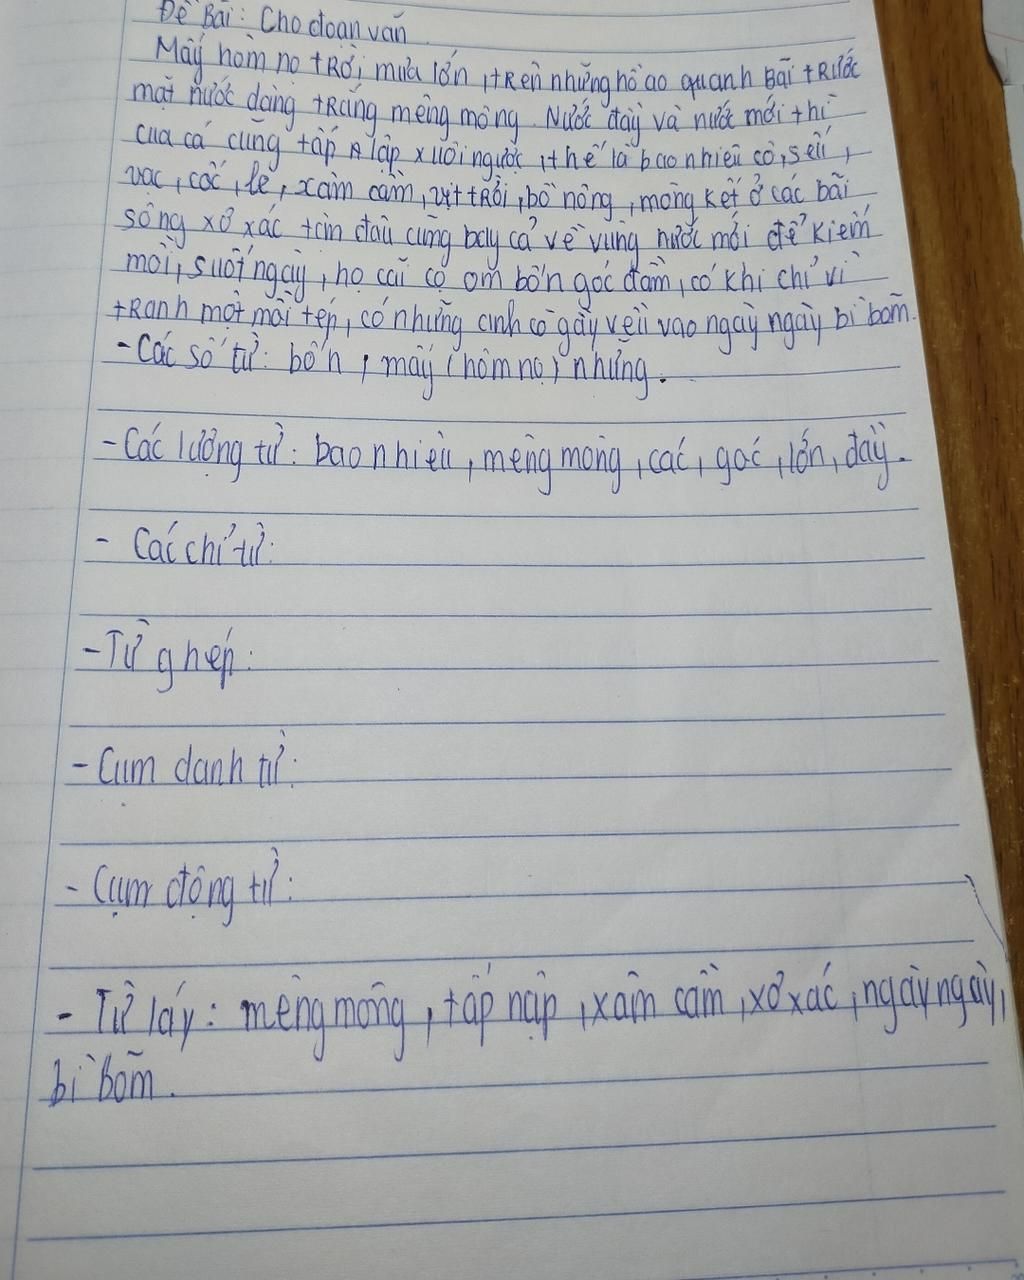 Đề Bài: Cho đoạn văn
Mấy hôm nọ tRời mưa lớn, tRên những hồ ao quanh Bãi tRước
mặt nước dâng tRắng mênh mông. Nước đầy và nước mới thì
cua cá cũng tấp lập xuôi ngược, thế là bao nhiêu cò, sếu,
vạc, cốc, le, xâm cầm, vịt tRời, bồ nông, mòng két ở các bãi
sông xơ xác tận đâu cũng bay cả về vùng nước mới để kiếm
mồi, suốt ngày, họ cãi cọ om bốn góc đầm, có khi chỉ vì
tRanh một mồi tép, có những anh cò gầy vêu vao ngày ngày bì bõm.
- Các số từ: bốn, mấy (hôm nọ) những.
- Các lượng từ: bao nhiêu, mênh mông, các, góc, lớn, đầy.
- Các chỉ từ:
- Từ ghép:
- Cụm danh từ:
- Cụm động từ:
- Từ láy: mênh mông, tấp nập, xâm cầm, xơ xác, ngày ngày,
bì bõm.